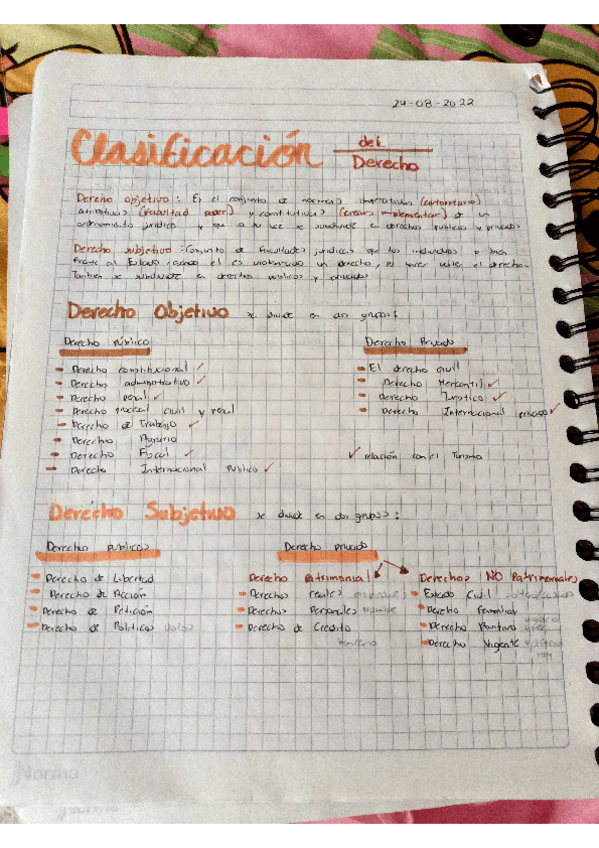 24-08-2022
Clasificación del
Derecho
Derecho objetivo: Es el conjunto de normas imperativas (autoritario)
atributivas (facultad poder) y constitutivas (crear implementar) de un
ordenamiento jurídico y que a su vez se subdivide en derechos públicos y privados
Derecho subjetivo: Conjunto de facultades jurídicas que los individuos o bien
frente al Estado cuando el es un derecho, el hacer valer el derecho.
También se subdivide en derechos públicos y privados
Derecho Objetivo se divide en dos grupos:
Derecho público Derecho Privado
Derecho constitucional ✓ El derecho civil
Derecho administrativo ✓ Derecho Mercantil ✓
Derecho penal ✓ Derecho Turístico ✓
Derecho procesal civil y penal Derecho Internacional privado ✓
Derecho de Trabajo ✓
Derecho Agrario
Derecho Fiscal ✓ ✓ relación con el Turismo
Derecho Internacional Publico ✓
Derecho Subjetivo se divide en dos grupos:
Derechos publicos Derecho privado
Derecho de Libertad Derecho Patrimonial Derechos NO Patrimoniales
Derecho de Acción Derechos reales Estado Civil
Derecho de Petición Derechos Personales nombre Derecho Familiar
Derecho de Politicos votos Derecho de Credito Derecho
Derecho Vigente
Norma